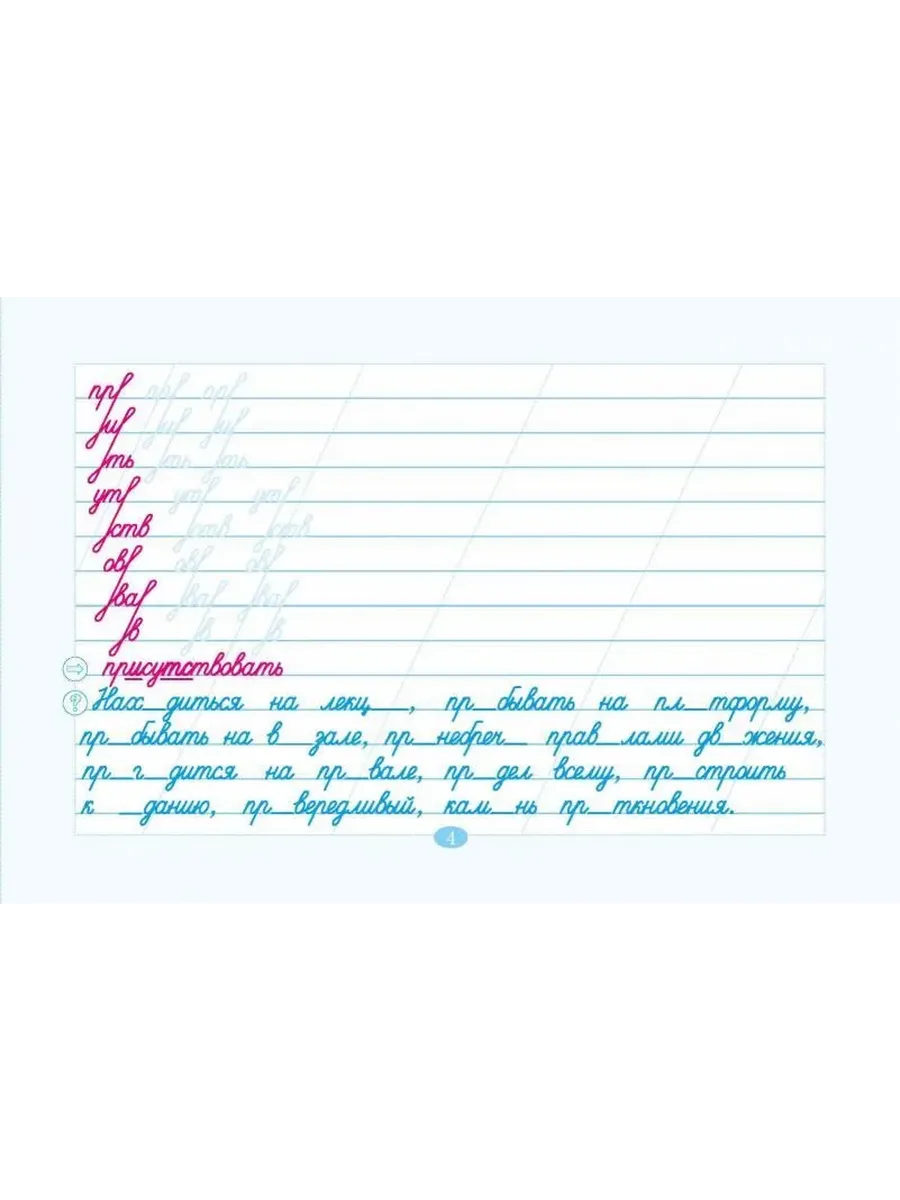 пр
и
ть
ут
ств
ов
ва
в
присутствовать
Нахо_диться на лекц__, пр_бывать на пл_тформу,
пр_бывать на в_зале, пр_небреч_ прав_лами дв_жения,
пр_г_дится на пр_вале, пр_дел всему, пр_строить
к _данию, пр_вередливый, кам_нь пр_ткновения.
4